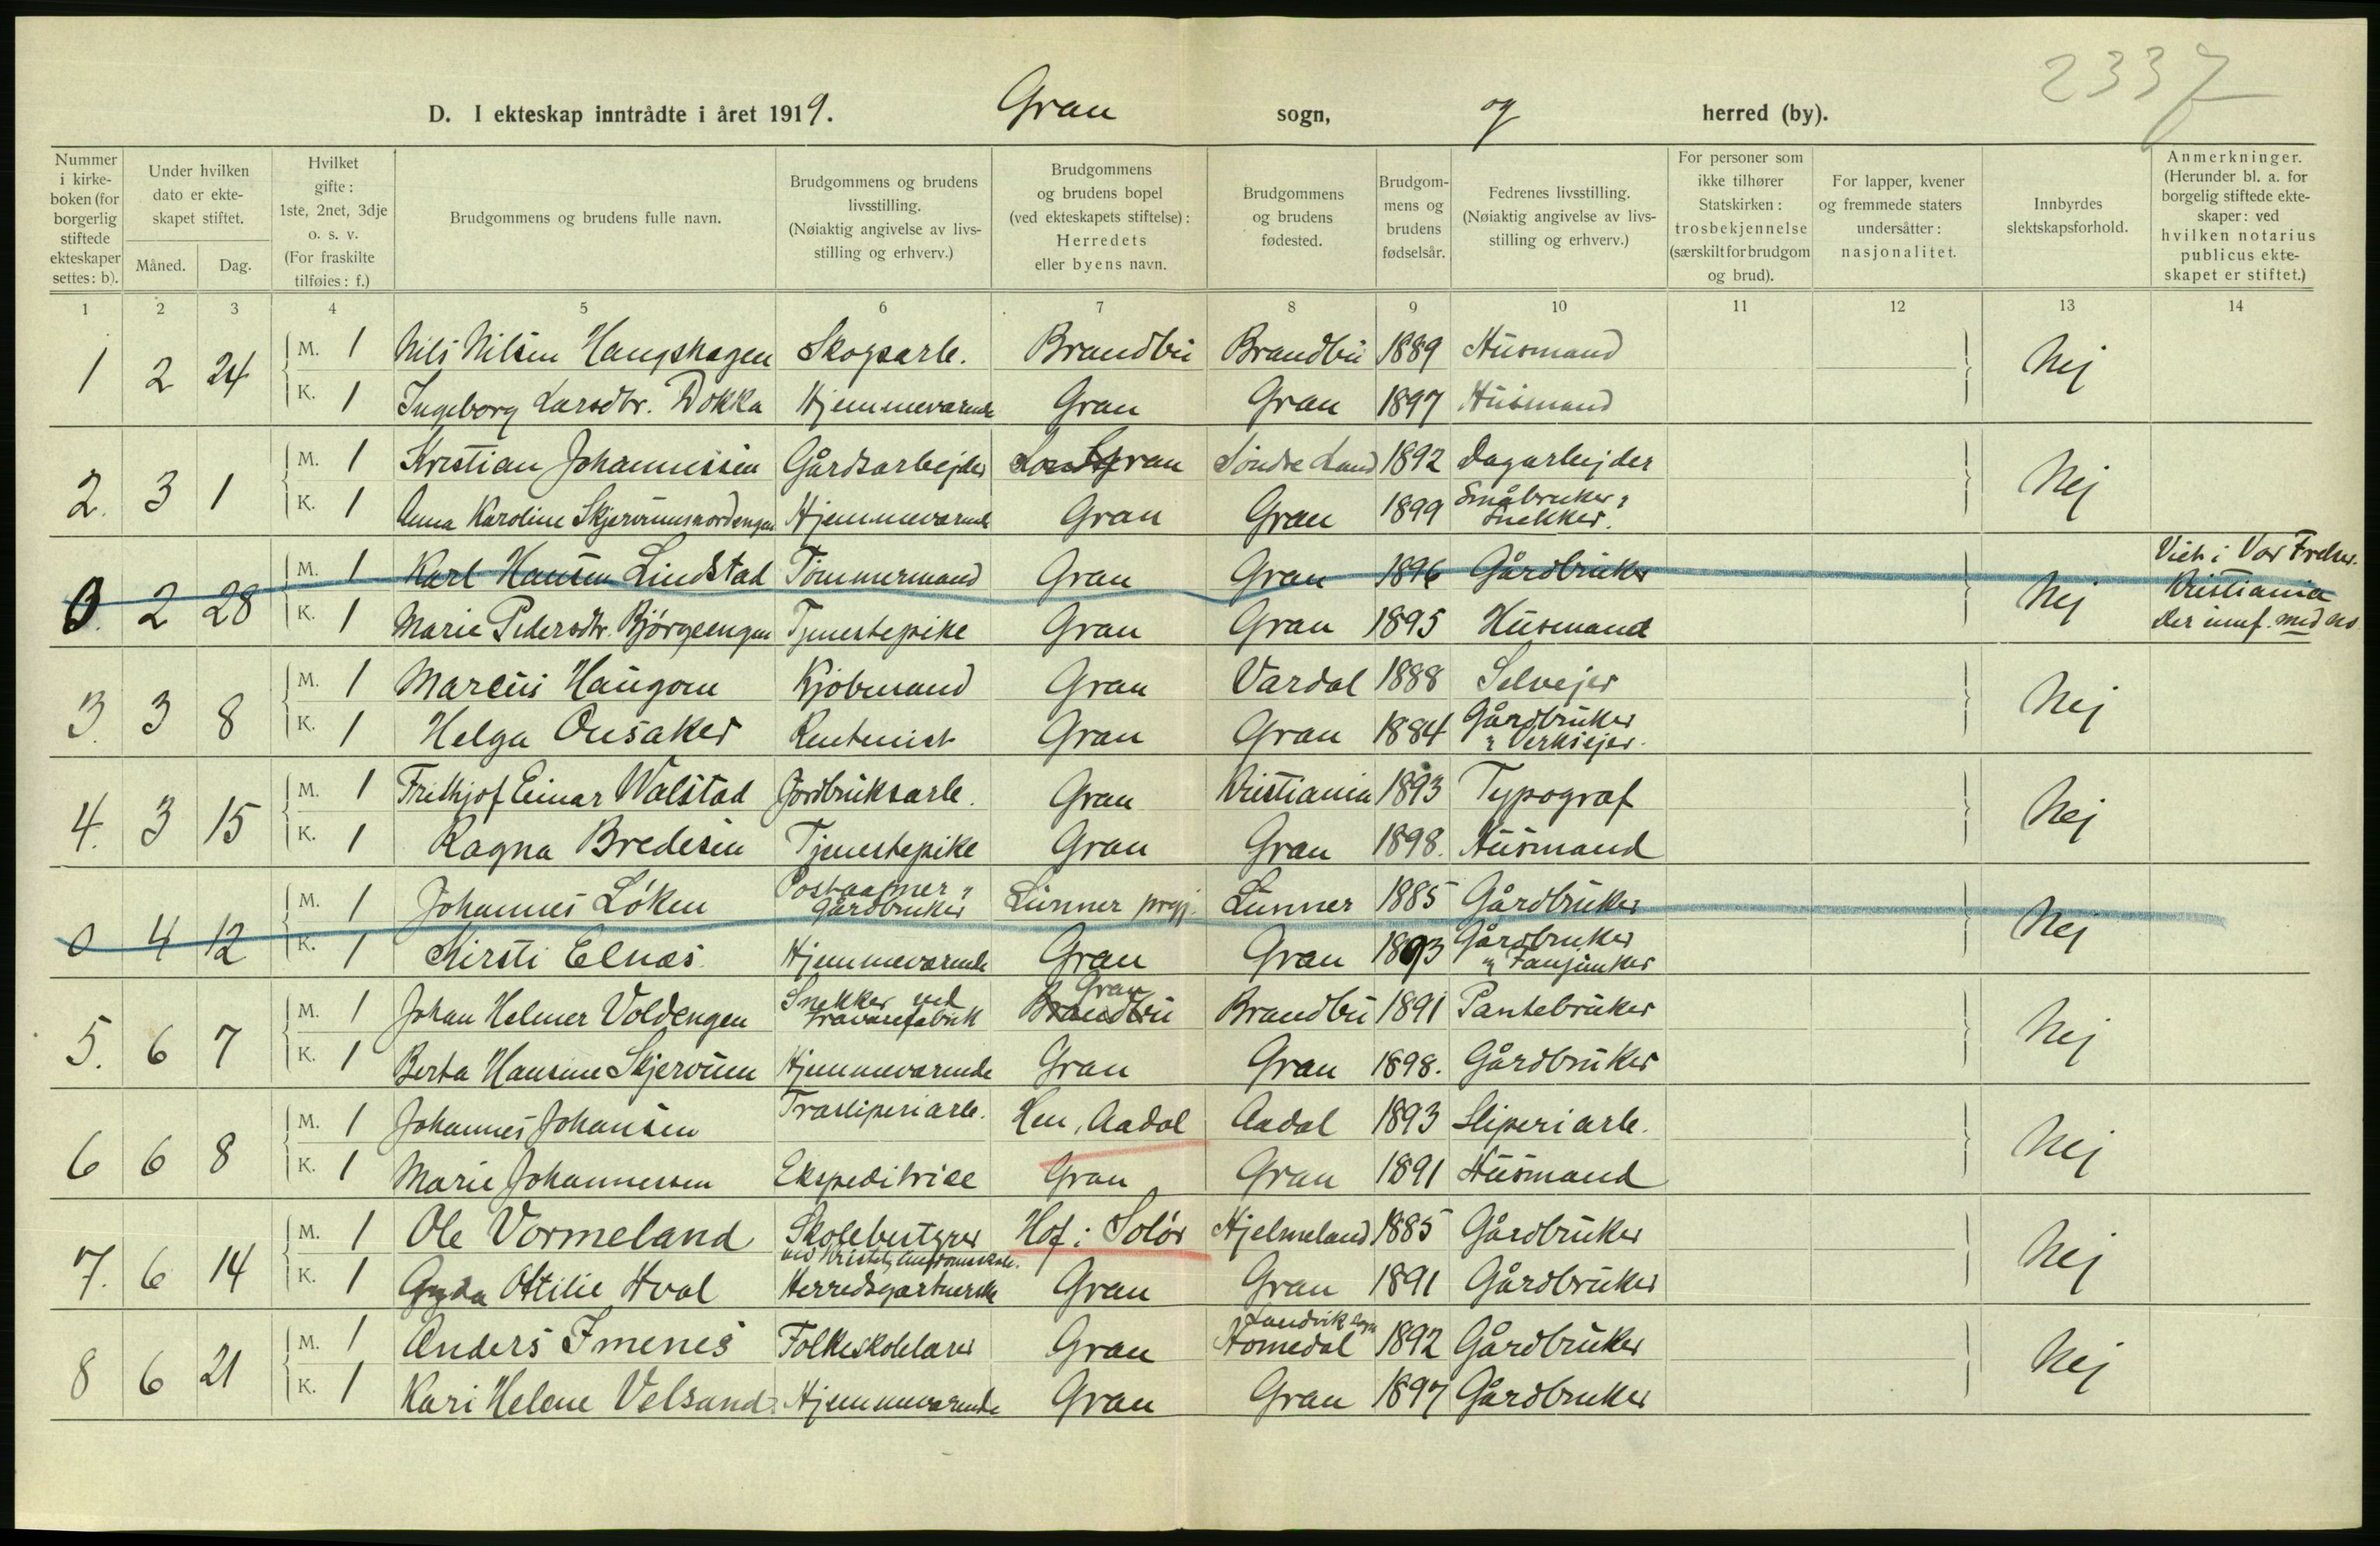 2337
D. I ekteskap inntrådte i året 1919. Gran sogn, og herred (by).
Nummer i kirke-boken (for borgerlig stiftede ekteskaper settes: b).
Under hvilken dato er ekte-skapet stiftet.
Måned. Dag.
Hvilket gifte: 1ste, 2net, 3dje o. s. v. (For fraskilte tilføies: f.)
Brudgommens og brudens fulle navn.
Brudgommens og brudens livsstilling. (Nøiaktig angivelse av livs-stilling og erhverv.)
Brudgommens og brudens bopel (ved ekteskapets stiftelse): Herredets eller byens navn.
Brudgommens og brudens fødested.
Brudgom-mens og brudens fødselsår.
Fedrenes livsstilling. (Nøiaktig angivelse av livs-stilling og erhverv.)
For personer som ikke tilhører Statskirken: trosbekjennelse (særskilt for brudgom og brud).
For lapper, kvener og fremmede staters undersåtter: nasjonalitet.
Innbyrdes slektskapsforhold.
Anmerkninger. (Herunder bl. a. for borgelig stiftede ekte-skaper: ved hvilken notarius publicus ekte-skapet er stiftet.)
1 2 3 4 5 6 7 8 9 10 11 12 13 14
1 2 24 M. 1 Nils Nilsen Haugshagen Skogsarb. Brandbu Brandbu 1889 Husmand Nej
K. 1 Ingeborg Larsdtr. Dokka Hjemmeværende Gran Gran 1897 Husmand
2. 3 1 M. 1 Kristian Johannessen Gårdsarbejder Gran Søndre Land 1892 Dagarbejder Nej
K. 1 Anna Karoline Skjervumsnordengen Hjemmeværende Gran Gran 1899 Småbruker & Snekker.
0. 2 28 M. 1 Karl Hansen Lindstad Tømmermand Gran Gran 1896 Gårdbruker Nej Vieh i Vor Frelser. Kristiania
K. 1 Marie Pedersdtr. Bjørgeengen Tjenestepike Gran Gran 1895 Husmand Der innf. med no
3. 3 8 M. 1 Marcus Haugom Kjøbmand Gran Vardal 1888 Selvejer Nej
K. 1 Helga Ousaker Rentenist Gran Gran 1884 Gårdbruker & Verksejer.
4. 3 15 M. 1 Frithjof Einar Walstad Jordbruksarb. Gran Kristiania 1893 Typograf Nej
K. 1 Ragna Bredesen Tjenestepike Gran Gran 1898. Husmand
0 4 12 M. 1 Johannes Løken Postaapner & gårdbruker Lunner pregj. Lunner 1885 Gårdbruker Nej
K. 1 Kirsti Elnæs Hjemmeværende Gran Gran 1893 Gårdbruker & Fanejunker
5. 6 7 M. 1 Johan Helmer Voldengen Snekker ved Trævarefabrik Brandbu Gran Brandbu 1891 Pantebruker Nej
K. 1 Berta Hansine Skjervum Hjemmeværende Gran Gran 1898. Gårdbruker
6 6 8 M. 1 Johannes Johansen Træsliperiarb. Hen, Aadal Aadal 1893 Sliperiarb. Nej
K. 1 Marie Johannessen Ekspeditrice Gran Gran 1891 Husmand
7. 6 14 M. 1 Ole Vormeland Skolebestyrer ved Kristelig Ungdomsskole. Hof i Solør Hjelmeland 1885 Gårdbruker Nej
K. 1 Gyda Otilie Hval Herredsgartnerske Gran Gran 1891 Gårdbruker
8 6 21 M. 1 Anders Imenes Folkeskolelærer Gran Landvik sogn Homedal 1892 Gårdbruker Nej
K. 1 Kari Helene Velsand Hjemmeværende Gran Gran 1897 Gårdbruker